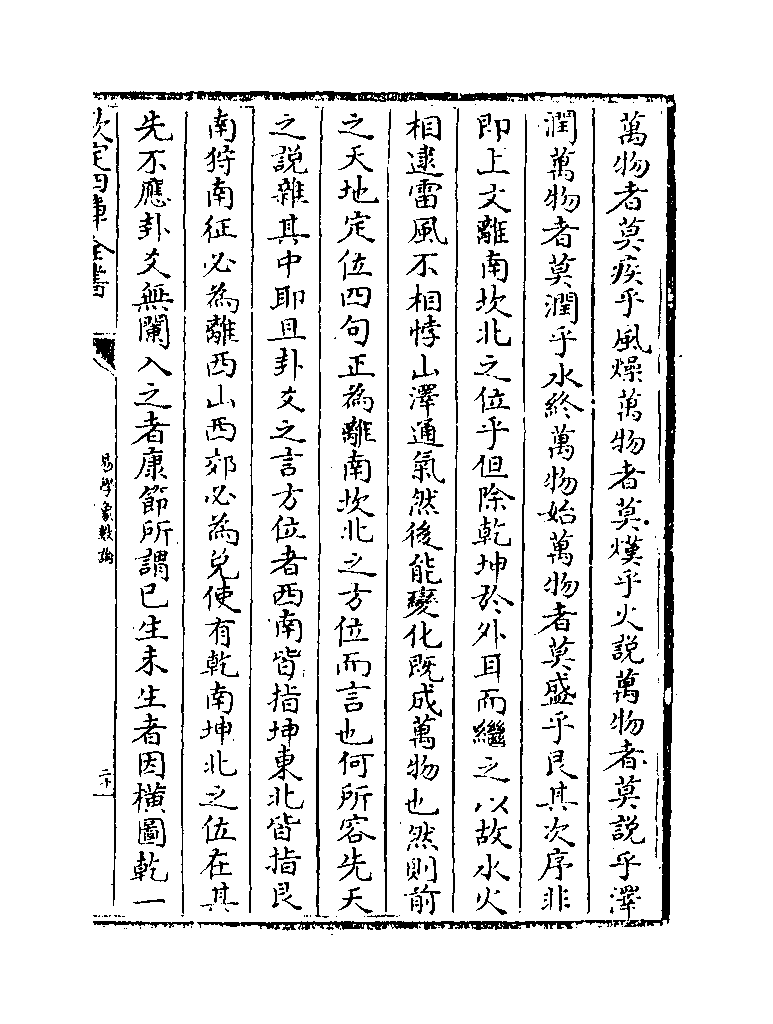 萬物者莫疾乎風燥萬物者莫熯乎火説萬物者莫説乎澤
潤萬物者莫潤乎水終萬物始萬物者莫盛乎艮其次序非
即上文離南坎北之位乎但除乾坤於外耳而繼之以故水火
相逮雷風不相悖山澤通氣然後能變化既成萬物也然則前
之天地定位四句正為離南坎北之方位而言也何所容先天
之説雜其中耶且卦爻之言方位者西南皆指坤東北皆指艮
南狩南征必為離西山西郊必為兌使有乾南坤北之位在其
先不應卦爻無闌入之者康節所謂已生未生者因横圖乾一
欽定四庫全書
易學象數論